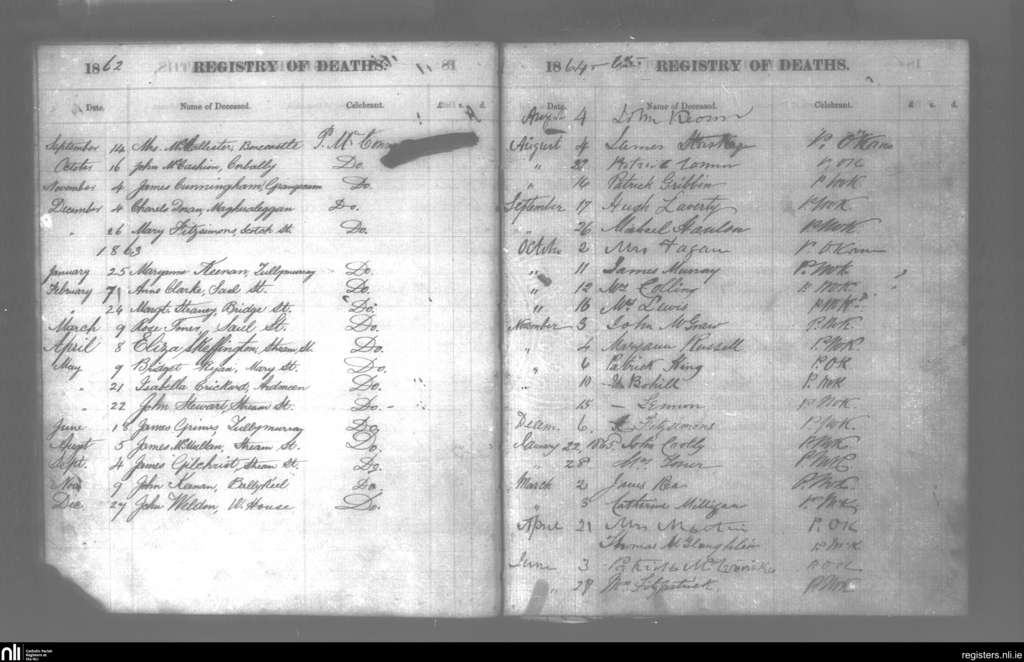 1862 REGISTRY OF DEATHS.
Date. Name of Deceased. Celebrant. £ s. d.
September 14 Mrs. McCallister, Bonecastle P. McConn
October 16 John McCashion, Corbally Do.
November 4 James Cunningham, Grangecam Do.
December 4 Charels Doran, Magheraleggan Do.
" 26 Mary Fitzsimons, Scotch St. Do.
1863
January 25 Maryanne Keenan, Tullymurray Do.
February 7 Anne Clarke, Saul St. Do.
" 24 Margt. Straney, Bridge St. Do.
March 9 Rose Toner, Saul St. Do.
April 8 Eliza Skeffington, Stream St. Do.
May 9 Bridget Ryan, Mary St. Do.
" 21 Isabella Crickard, Ardmeen Do.
" 22 John Stewart, Stream St. Do.
June 18 James Grimes, Tullymurray Do.
August 5 James McMullan, Stream St. Do.
Sept. 4 James Gilchrist, Stream St. Do.
Nov. 9 John Keenan, Ballykeel Do.
Dec. 27 John Weldon, W. House Do.
1864-65. REGISTRY OF DEATHS.
Date. Name of Deceased. Celebrant. £ s. d.
August 4 John Keown
August 4 James P. O'Kane
" 22 P. OK
" 14 Patrick Gribbin P. McK
September 17 Hugh Laverty P. McK
" 26 Michael Hanlon P. McK
October 2 Mrs Fagan P. O'Kane
" 11 James Murray P. McK
" 12 Mrs Collins P. McK
" 16 Mrs Lewis P. McK
November 3 John McGraw P. McK
" 4 Maryann Russell P. McK
" 6 Patrick King P. OK
" 10 Bohill P. McK
15 — Lennon P. McK
Decem. 6 Fitzsimons P. McK
January 22, 1865 John P. McK
" 28 Mrs Toner P. McK
March 2 James Rea P. McK
" 3 Catherine Milligan P. McK
April 21 Mrs Martin P. OK
Thomas McGlaughlin P. McK
June 3 Patrick P. OK
" 29 Mrs Fitzpatrick P. McK
nli Catholic Parish Registers at the NLI
registers.nli.ie